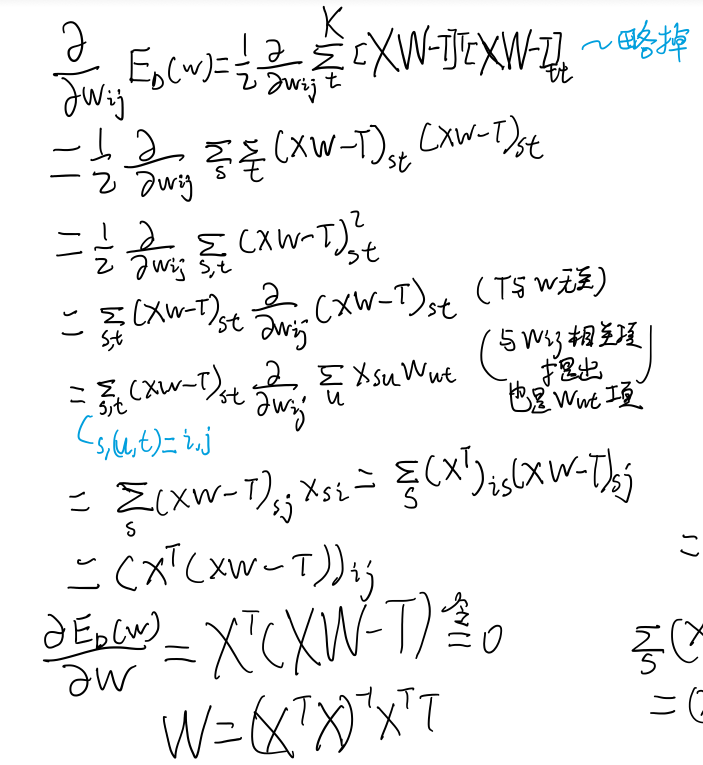 ∂/∂w_ij E_D(w) = 1/2 ∂/∂w_ij Σ_t^K [XW-T]^T[XW-T]_tt ~略掉
= 1/2 ∂/∂w_ij Σ_s Σ_t (XW-T)_st (XW-T)_st
= 1/2 ∂/∂w_ij Σ_s,t (XW-T)²_st
= Σ_s,t (XW-T)_st ∂/∂w_ij (XW-T)_st (T与W无关)
= Σ_s,t (XW-T)_st ∂/∂w_ij Σ_u X_su W_ut (与W_ij相关项
提出
也是W_ut项)
(s,(u,t)=i,j
= Σ_s (XW-T)_sj X_si = Σ_s (X^T)_is (XW-T)_sj
= (X^T(XW-T))_ij =
∂E_D(w)/∂W = X^T(XW-T) 令= 0 Σ_s (X
W = (X^T X)^-1 X^T T = (